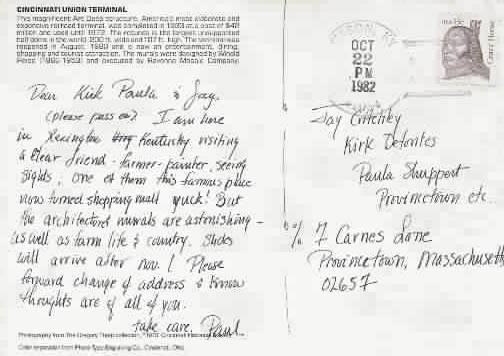 CINCINNATI UNION TERMINAL
This magnificent Art Deco structure, America's most elaborate and
expensive railroad terminal, was completed in 1933 at a cost of $42
million and used until 1972. The rotunda is the largest unsupported
half dome in the world: 200 ft. wide and 107 ft. high. The terminal was
reopened in August, 1980 and is now an entertainment, dining,
shopping and tourist attraction. The murals were designed by Winold
Reiss (1886-1953) and executed by Ravenna Mosaic Company.
OCT
22
PM
1982
USA 13c
Crazy Horse
Dear Kirk Paula & Jay,
(please pass on) I am here
in Lexington Kentucky visiting
a dear friend - farmer - painter, seeing
sights, one of them this famous place
now turned shopping mall yuck! But
the architectural murals are astonishing -
as well as farm life & country. Slides
will arrive after nov. 1 Please
forward change of address & know
thoughts are of all of you.
take care, Paul
Jay Critchley
Kirk DeFontes
Paula Shuppert
Provincetown etc.
% 7 Carnes Lane
Provincetown, Massachusett
02657
Photography from The Gregory Thorp collection,
Color separation from Photo Type Engraving Co., Cincinnati, Ohio